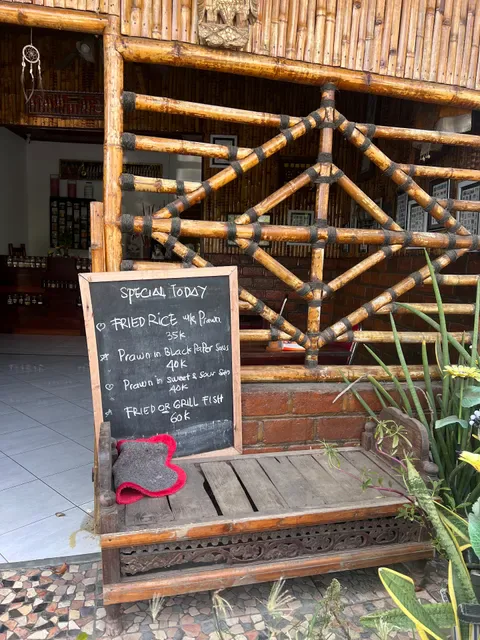 SPECIAL TODAY
FRIED RICE w/k Prawn
35K
Prawn in Black Paper Saus
40K
Prawn in sweet & sour Sas
40K
FRIED OR GRILL FISH
60K